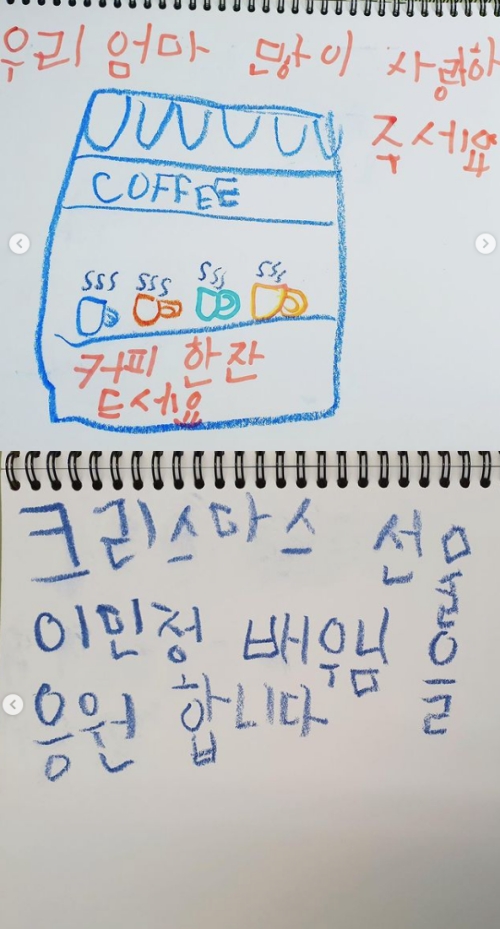 우리 엄마 많이 사랑하
주세요
COFFEE
커피 한잔
드세요
크리스마스 선물을
이민정 배우님
응원 합니다